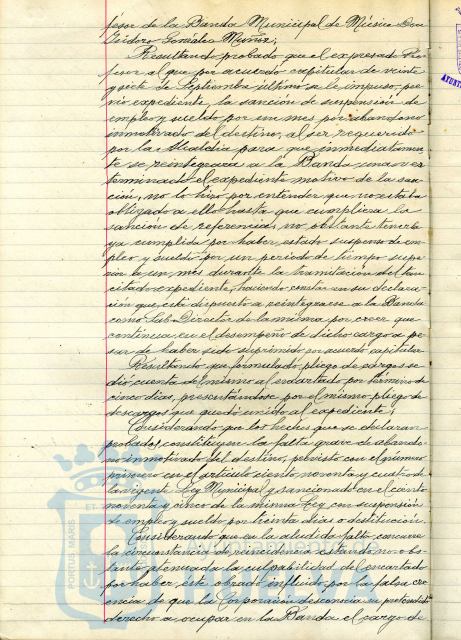 fesor de la Banda Municipal de Música Don
Isidoro Gonzalez Muñiz;
Resultando probado que el expresado Pro-
fesor al que por acuerdo capitular de veinte
y siete de Septiembre último se le impuso, pre-
vio expediente, la sanción de suspensión de
empleo y sueldo por un mes por abandono
inmotivado del destino, al ser requerido
por la Alcaldía para que inmediatamen-
te se reintegrara a la Banda una vez
terminado el expediente motivo de la san-
ción, no lo hizo por entender que no estaba
obligado a ello hasta que cumpliera la
sanción de referencia, no obstante tenerla
ya cumplida por haber estado suspenso de em-
pleo y sueldo por un periodo de tiempo supe-
rior a un mes durante la tramitación del tan
citado expediente, haciendo constar en su declara-
ción que está dispuesto a reintegrarse a la Banda
como Sub-Director de la misma por creer que
continúa en el desempeño de dicho cargo a pe-
sar de haber sido suprimido por acuerdo capitular
Resultando que formulado pliego de cargos se
dió cuenta del mismo al encartado por término de
cinco días, presentándose por el mismo pliego de
descargos que quedó unido al expediente;
Considerando que los hechos que se declaran
probados, constituyen la falta grave de abando-
no inmotivado del destino, previsto con el número
primero en el artículo ciento noventa y cuatro de
la vigente Ley Municipal y sancionado en el ciento
noventa y cinco de la misma Ley con suspensión
de empleo y sueldo por treinta días o destitución.
Considerando que en la aludida falta concurre
la circunstancia de reincidencia estando no obs-
tante atenuada la culpabilidad del encartado
por haber éste obrado influido por la falsa cre-
encia de que la Corporación desconocía su pretendido
derecho a ocupar en la Banda el cargo de
PORTUS MARIS ET
Ayuntamiento de
HUELVA
AYUNT